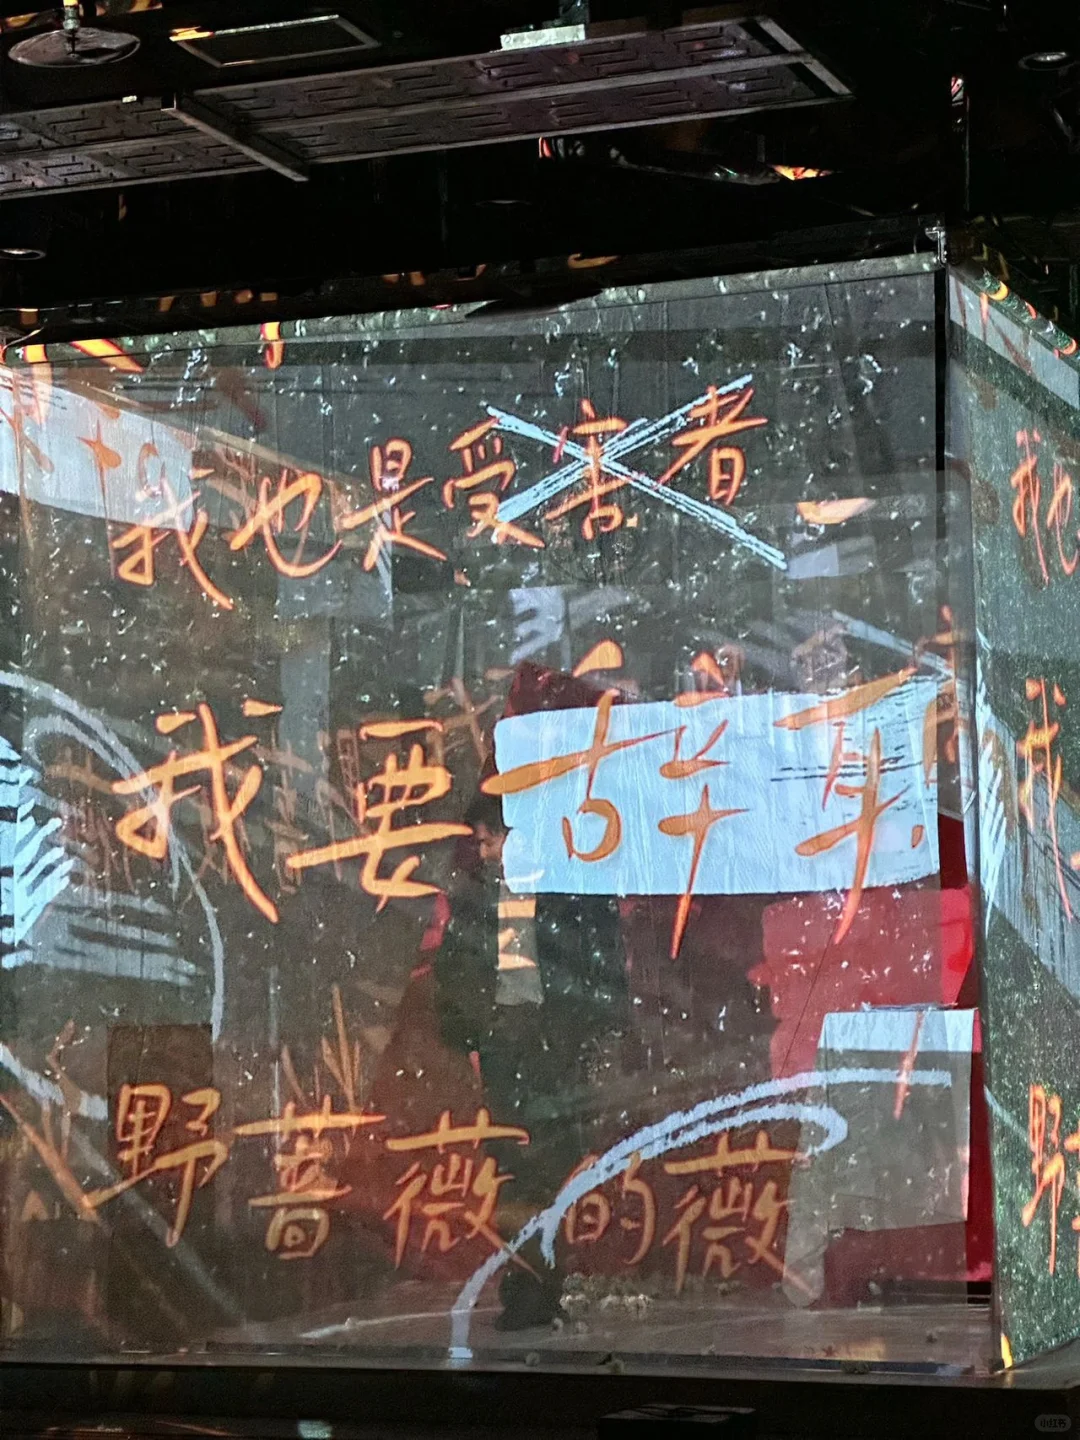 我也是受害者
我要辞耳!
野蔷薇的薇
我也
我
野
小红书